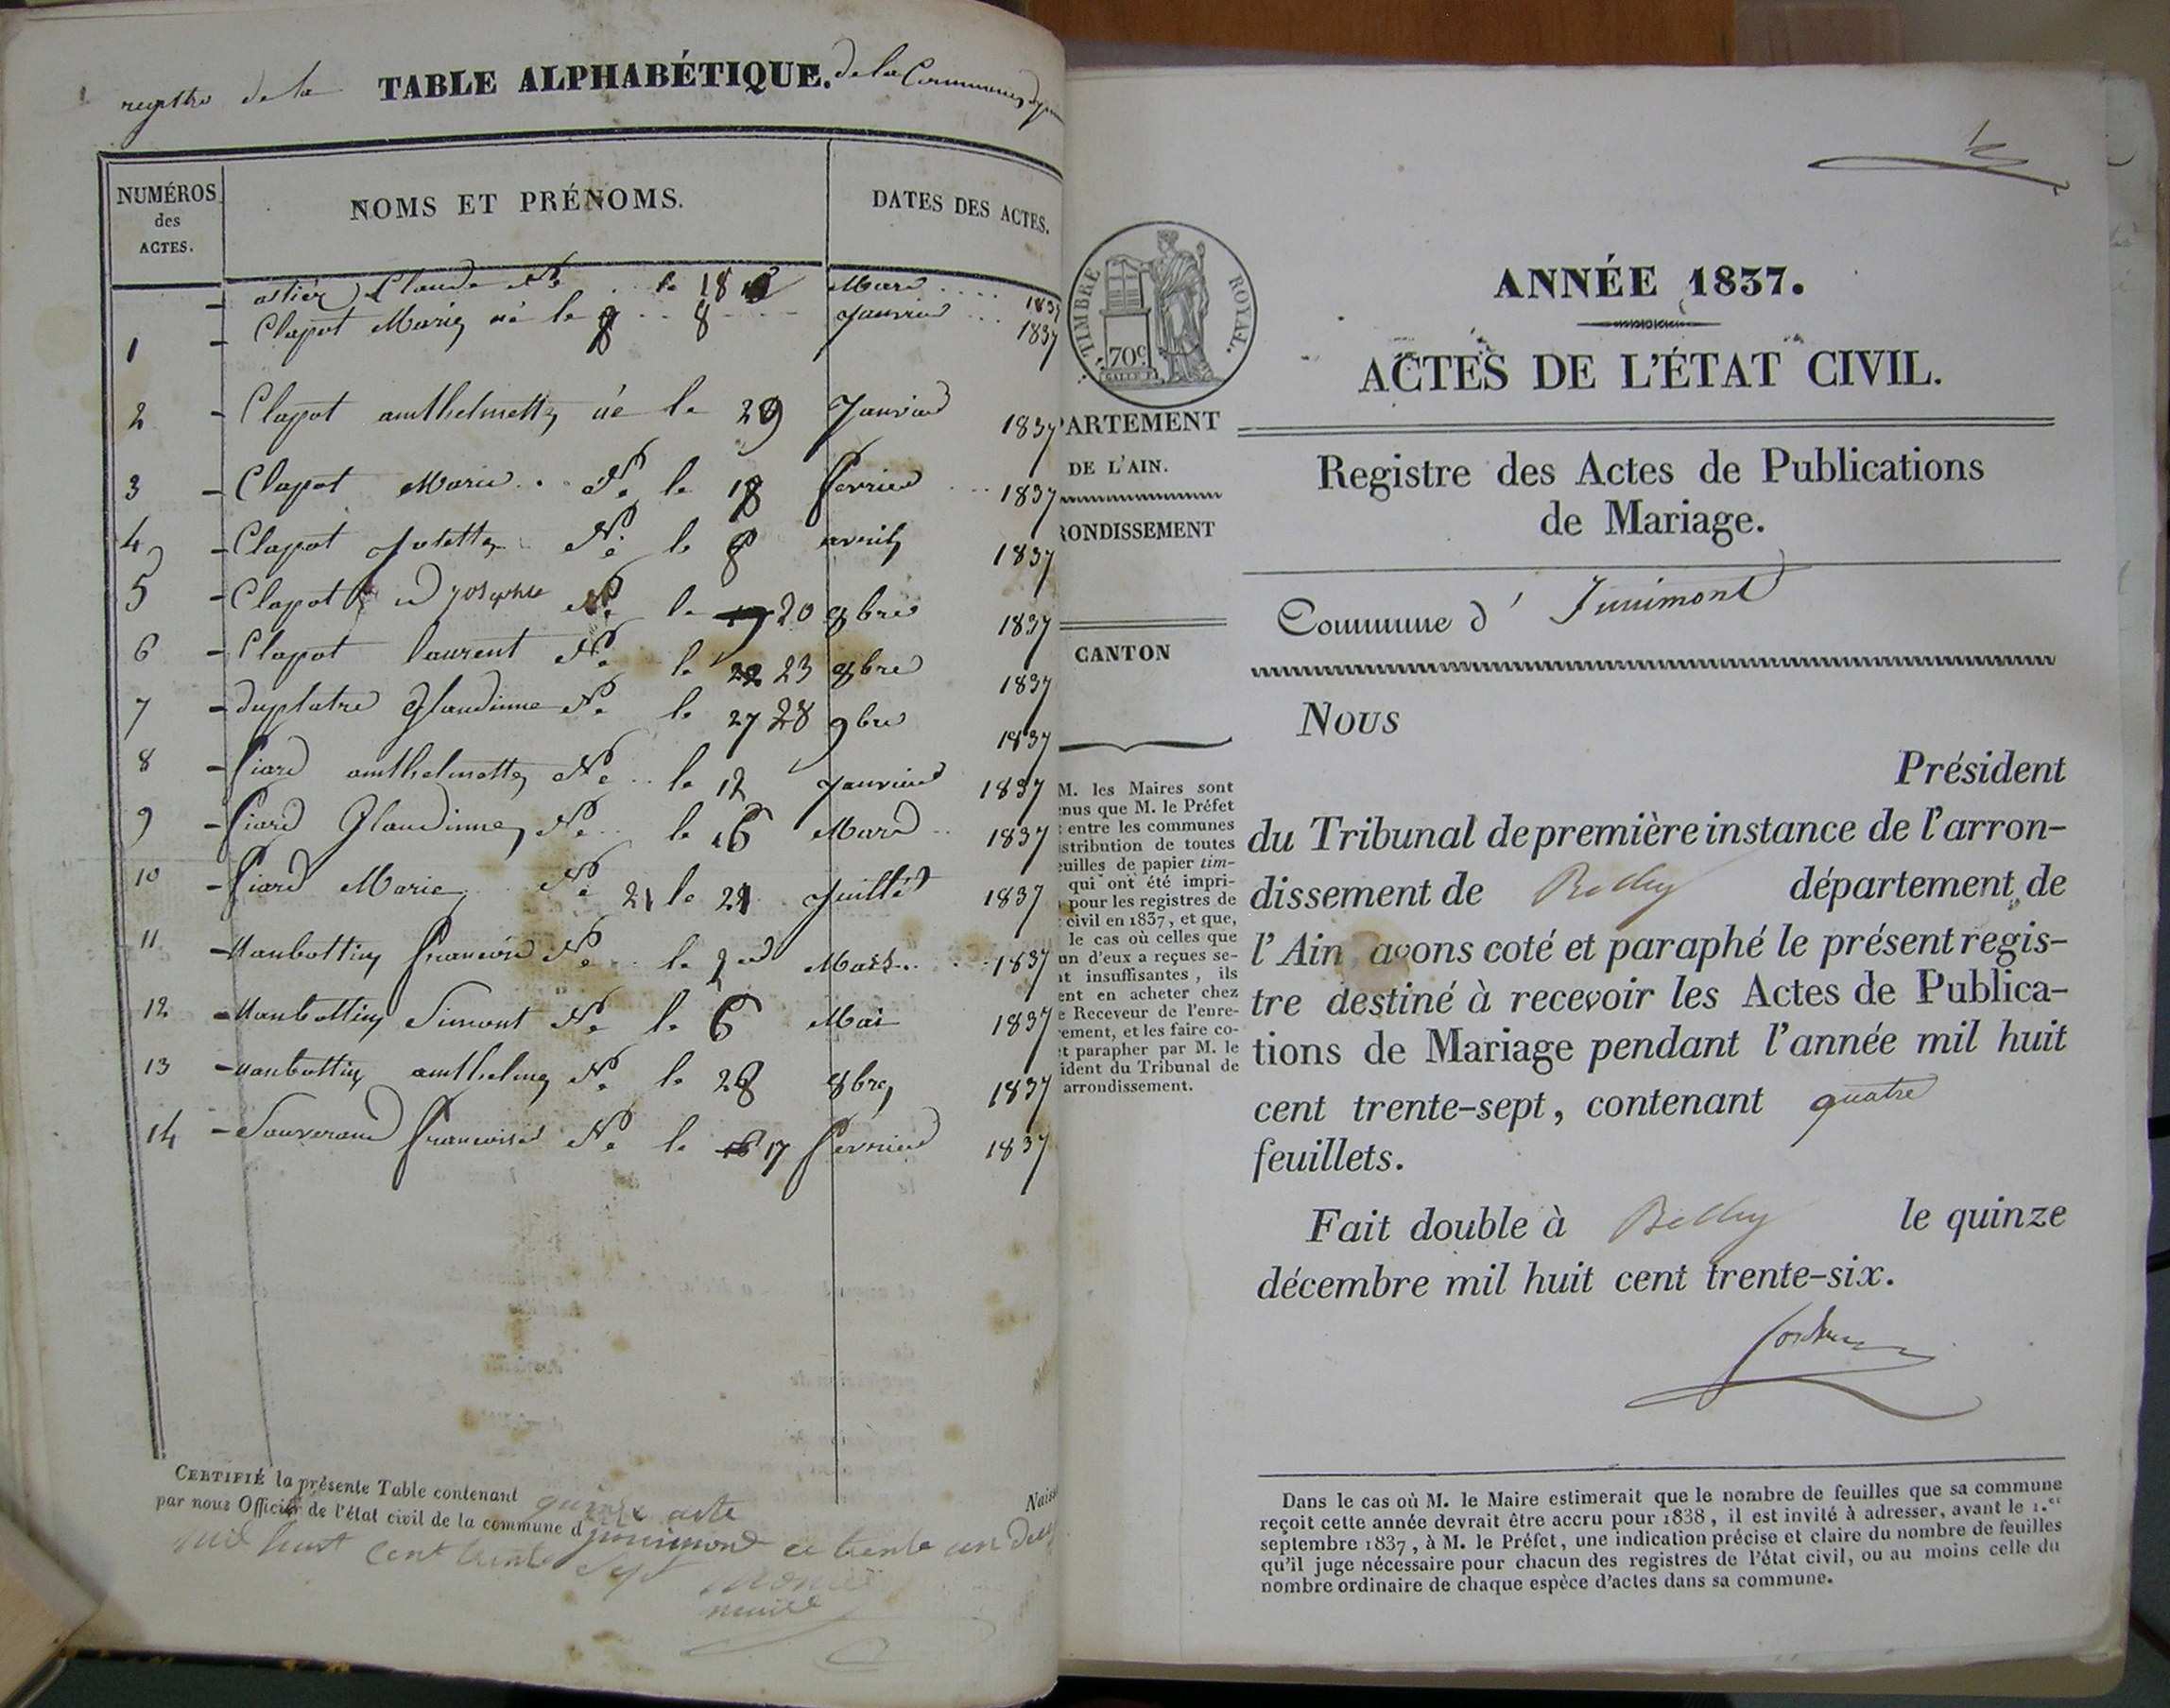 registre de la TABLE ALPHABÉTIQUE. de la Commune
NUMÉROS
des
ACTES.
NOMS ET PRÉNOMS.
DATES DES ACTES.
- astier Claude Né le 18 Mars 1837
1 - Clapot Marie né le 8 Janvier 1837
2 - Clapot anthelmette né le 29 Janvier 1837
3 - Clapot Marie Né le 18 fevrier 1837
4 - Clapot Né le 8 avril 1837
5 - Clapot josephte Né le 20 8bre 1837
6 - Clapot laurent Né le 23 8bre 1837
7 - duplatre Glaudinne Né le 27 28 9bre 1837
8 - fiard anthelmette Né le 12 Janvier 1837
9 - fiard Glaudinne Né le 16 Mars 1837
10 - fiard Marie Né 21 le 21 Juillet 1837
11 - Né le Mars 1837
12 - Simont Né le 6 Mai 1837
13 - anthelme Né le 28 8bre 1837
14 - francoise Né le 17 fevrier 1837
CERTIFIÉ la présente Table contenant quinze acte
par nous Officier de l'état civil de la commune d jnnimond ce trente un
mil huit cent trente sept
maire
TIMBRE ROYAL.
70c
PARTEMENT
DE L'AIN.
RONDISSEMENT
CANTON
M. les Maires sont
enus que M. le Préfet
entre les communes
istribution de toutes
euilles de papier tim-
qui ont été impri-
pour les registres de
civil en 1837, et que,
le cas où celles que
un d'eux a reçues se-
nt insuffisantes, ils
ent en acheter chez
e Receveur de l'enre-
ement, et les faire co-
t parapher par M. le
ident du Tribunal de
arrondissement.
ANNÉE 1837.
ACTES DE L'ÉTAT CIVIL.
Registre des Actes de Publications
de Mariage.
Commune d' Innimont
Nous
Président
du Tribunal de première instance de l'arron-
dissement de Belley département de
l'Ain avons coté et paraphé le présent regis-
tre destiné à recevoir les Actes de Publica-
tions de Mariage pendant l'année mil huit
cent trente-sept, contenant quatre
feuillets.
Fait double à Belley le quinze
décembre mil huit cent trente-six.
Dans le cas où M. le Maire estimerait que le nombre de feuilles que sa commune
reçoit cette année devrait être accru pour 1838, il est invité à adresser, avant le 1.er
septembre 1837, à M. le Préfet, une indication précise et claire du nombre de feuilles
qu'il juge nécessaire pour chacun des registres de l'état civil, ou au moins celle du
nombre ordinaire de chaque espèce d'actes dans sa commune.